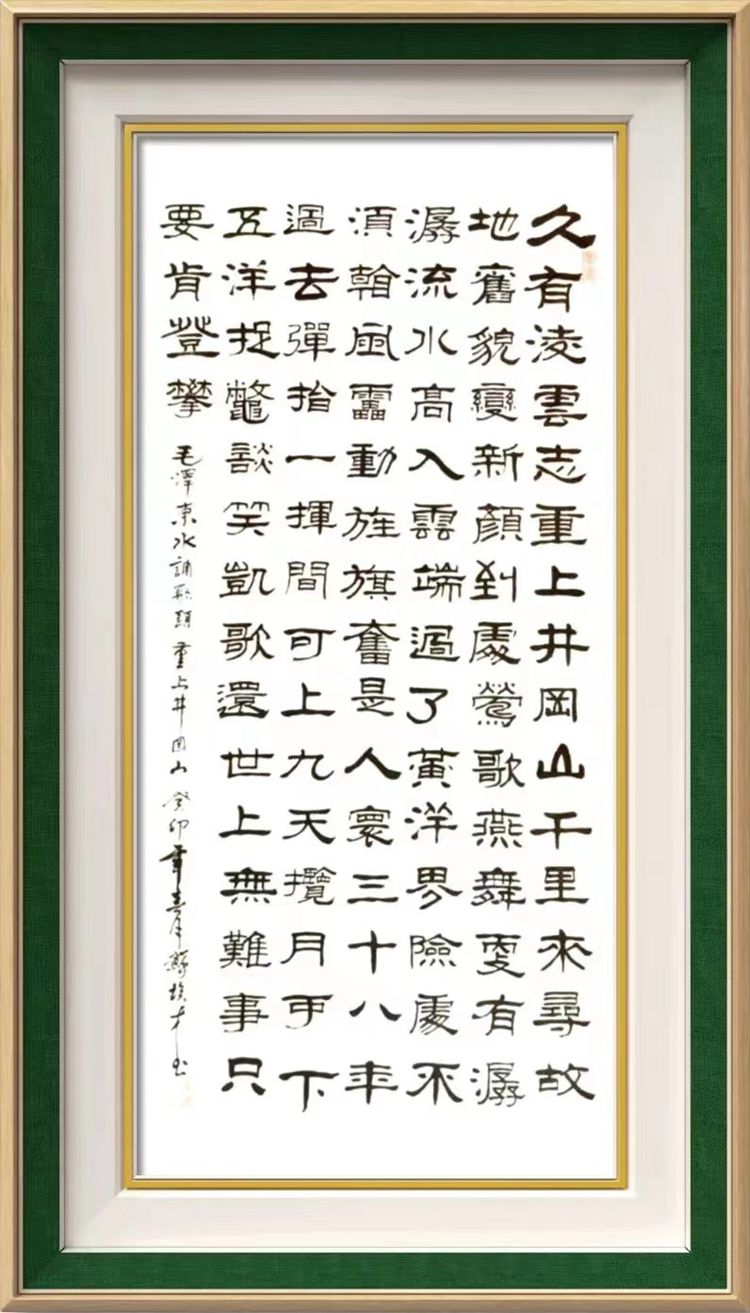 久有淩雲志重上井岡山千里來尋故
地舊貌變新顏到處鶯歌燕舞更有潺
潺流水高入雲端過了黃洋界險處不
湏看風雷動旌旗奮是人寰三十八年
過去彈指一揮間可上九天攬月可下
五洋捉鼈談笑凱歌還世上無難事只
要肯登攀
毛澤東水調歌頭重上井岡山癸卯年春月蘇